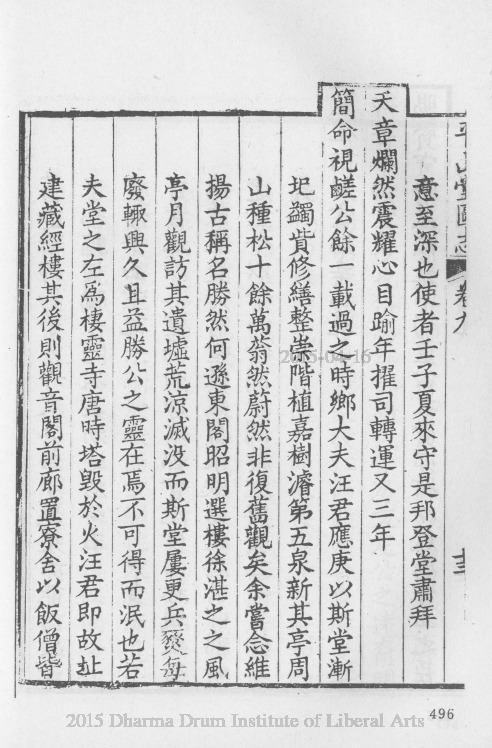 平山堂圖志 卷九 十三
意至深也使者壬子夏來守是邦登堂肅拜
天章爛然震耀心目踰年擢司轉運又三年
簡命視鹺公餘一載過之時鄉大夫汪君應庚以斯堂漸
圮蠲貲修繕整崇階植嘉樹濬第五泉新其亭周
山種松十餘萬蓊然蔚然非復舊觀矣余嘗念維
揚古稱名勝然何遜東閣昭明選樓徐湛之之風
亭月觀訪其遺墟荒涼滅没而斯堂屢更兵燹每
廢輙興久且益勝公之靈在焉不可得而泯也若
夫堂之左爲棲靈寺唐時塔毀於火汪君即故址
建藏經樓其後則觀音閣前廊置寮舍以飯僧皆
2015-04-16
496
2015 Dharma Drum Institute of Liberal Arts